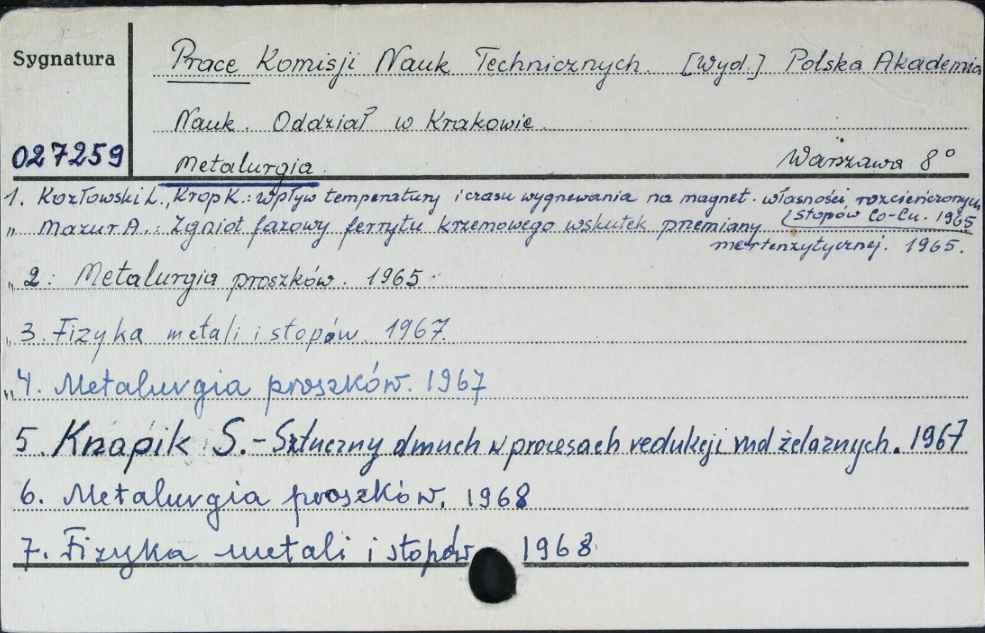 Sygnatura
Prace Komisji Nauk Technicznych. [Wyd.] Polska Akademia
Nauk. Oddział w Krakowie.
027259
Metalurgia. Warszawa 8°
1. Kozłowski L., Krop K.: Wpływ temperatury i czasu wygrzewania na magnet. własności rozcieńczonych
stopów Co-Cu. 1965
„ Mazur A.: Zgniot fazowy ferrytu krzemowego wskutek przemiany
martenzytycznej. 1965.
„ 2: Metalurgia proszków. 1965
„ 3. Fizyka metali i stopów. 1967.
„ 4. Metalurgia proszków. 1967
5. Knapik S. - Sztuczny dmuch w procesach redukcji rud żelaznych. 1967
6. Metalurgia proszków. 1968
7. Fizyka metali i stopów 1968